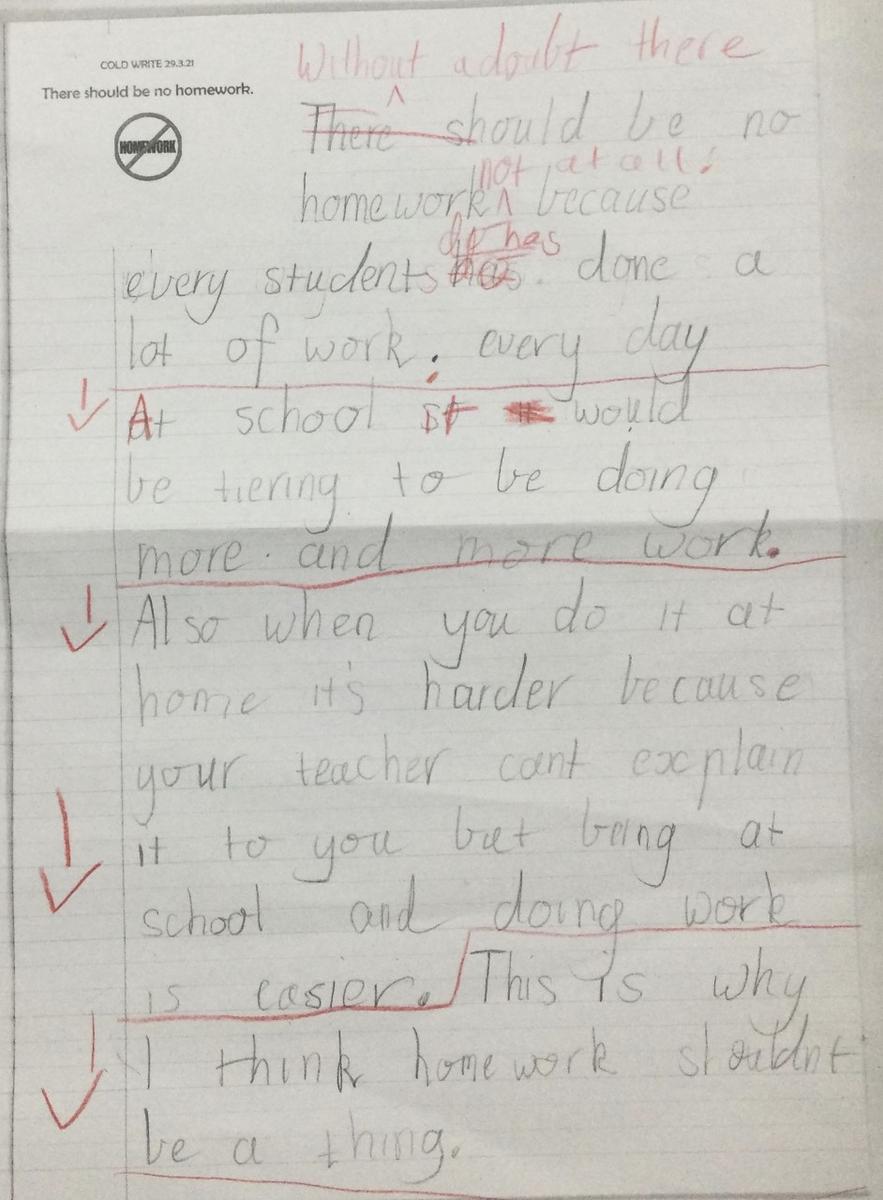 COLD WRITE 29.3.21
There should be no homework.
HOMEWORK
Without a doubt there
There should be no
not at all!
homework because
has
every students has done a
lot of work. every day
At school would
be tiering to be doing
more and more work.
Also when you do it at
home it's harder because
your teacher cant explain
it to you but being at
school and doing work
is easier. This is why
I think homework shouldnt
be a thing.